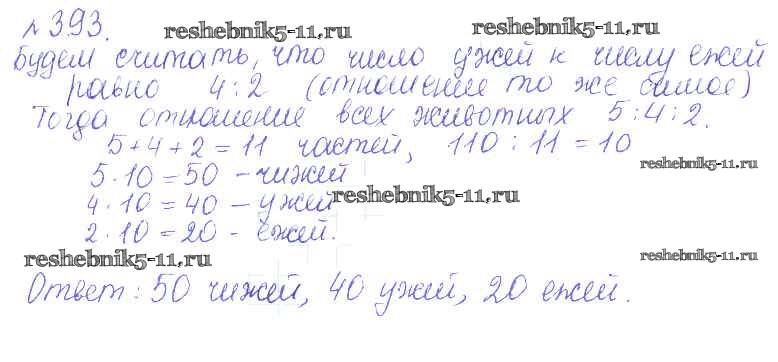 № 393. reshebnik5-11.ru
Будем считать, что число ужей к числу ежей
равно 4:2 (отношение то же самое)
Тогда отношение всех животных 5:4:2.
5+4+2=11 частей, 110:11=10
reshebnik5-11.ru
5·10=50 – чижей
4·10=40 – ужей reshebnik5-11.ru
2·10=20 - ежей.
reshebnik5-11.ru reshebnik5-11.ru
Ответ: 50 чижей, 40 ужей, 20 ежей.